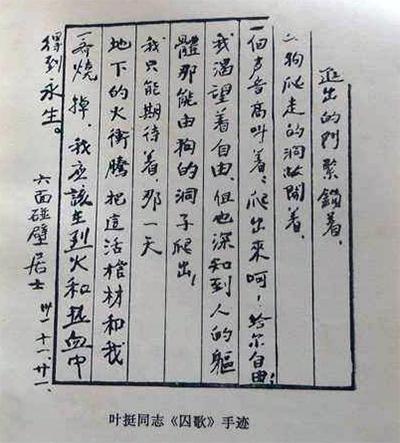 進出的門緊鎖着、
狗爬走的洞敞開着、
一個声音高叫着、爬出來呵！給尔自由！
我渴望着自由、但也深知到人的軀
體那能由狗的洞子爬出！
我只能期待着、那一天
地下的火衝騰把這活棺材和我
一齊燒掉、我应該在烈火和热血中
得到永生。
六面碰壁居士 卅一.十一.廿一.
叶挺同志《囚歌》手迹